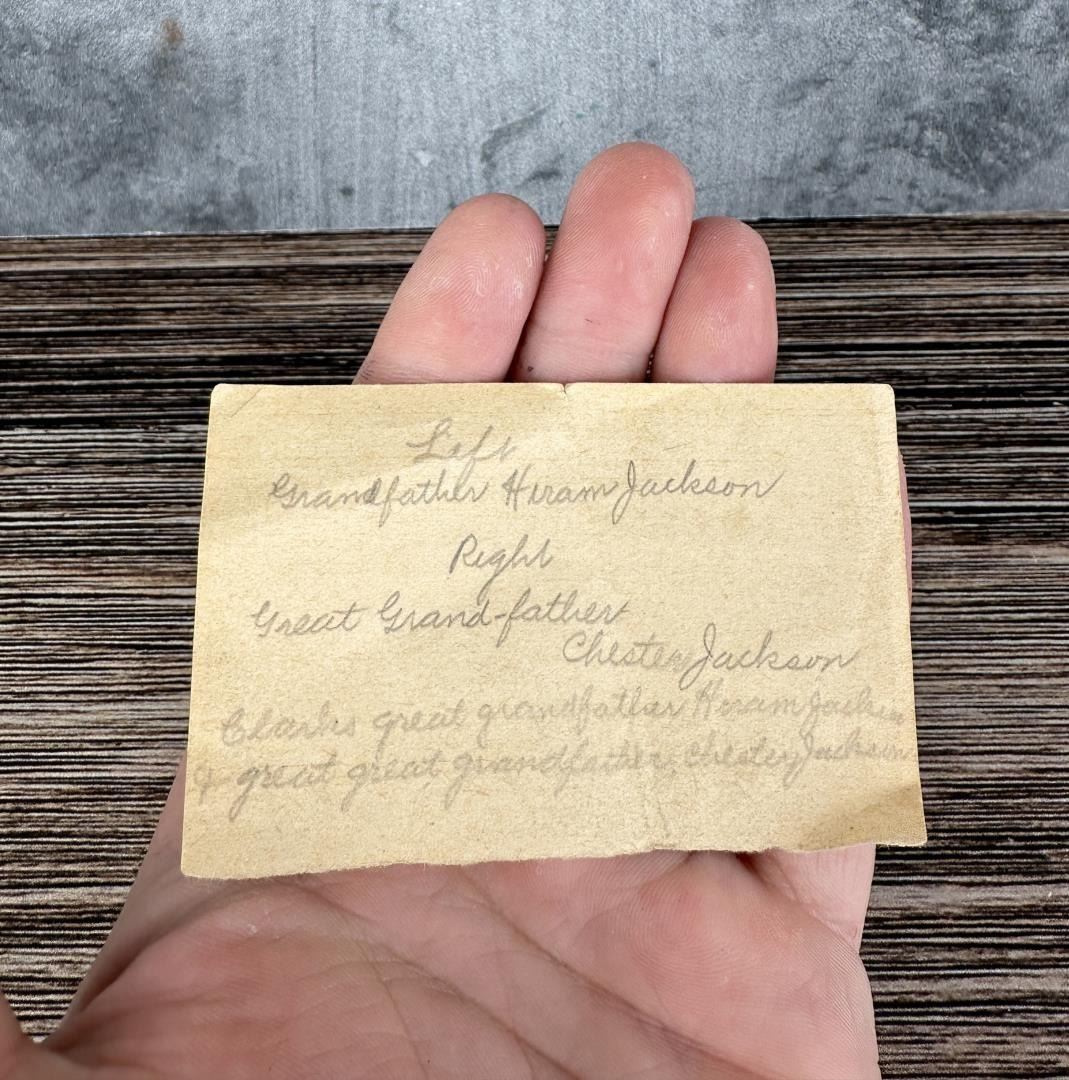 Left
Grandfather Hiram Jackson
Right
Great Grand-father
Chester Jackson
Clarks great grandfather Hiram Jackson
& great great grandfather Chester Jackson